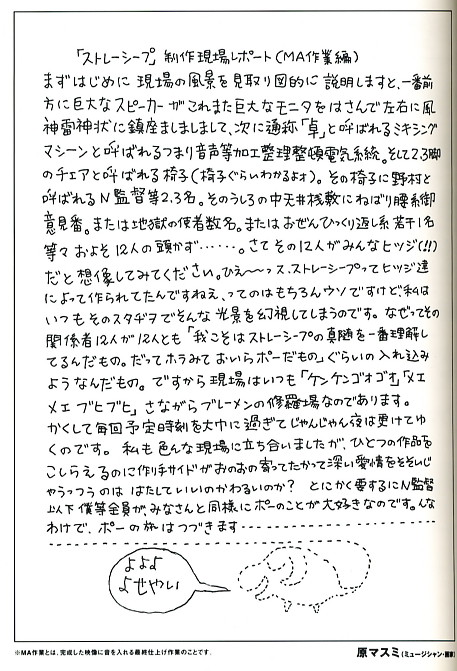 「ストレーシープ」制作現場レポート(MA作業編)
まずはじめに 現場の風景を見取り図的に 説明しますと、一番前
方に巨大なスピーカーがこれまた巨大なモニタをはさんで左右に風
神雷神状に鎮座ましましまして、次に通称「卓」と呼ばれるミキシング
マシーンと呼ばれるつまり音声等加工整理整頓電気系統。そして2.3脚
のチェアと呼ばれる椅子(椅子ぐらいわかるよォ)。その椅子に野村と
呼ばれるN監督等2.3名。そのうしろの中天井桟敷にねばり腰系御
意見番。または地獄の使者数名。またはおぜんひっくり返し系若干1名
等々 およそ12人の頭かず……。さてその12人がみんなヒツジ(!!)
だと想像してみてください。ひえ〜〜っス、ストレーシープってヒツジ達
によって作られてたんですねえ、ってのはもちろんウソですけど、私は
いつもそのスタヂヲでそんな光景を幻視してしまうのです。なぜってその
関係者12人が12人とも「我こそはストレーシープの真髄を一番理解し
てるんだもの。だってホラみておいらポーだもの」ぐらいの入れ込み
ようなんだもの。 ですから現場はいつも「ケンケンゴオゴオ」「メエ
メエ ブヒブヒ」さながらブレーメンの修羅場なのであります。
かくして毎回予定時刻を大巾に過ぎてじゃんじゃん夜は更けてゆ
くのです。 私も色んな現場に立ち合いましたが、ひとつの作品を
こしらえるのに作り手サイドがおのおの寄ってたかって深い愛情をそそいじ
ゃうっつうのは はたしていいのかわるいのか? とにかく要するにN監督
以下 僕等全員が、みなさんと同様にポーのことが大好きなのです。んな
わけで、ポーの旅はつづきます
よよよ
よせやい
※MA作業とは、完成した映像に音を入れる最終仕上げ作業のことです。
原マスミ(ミュージシャン・画家)